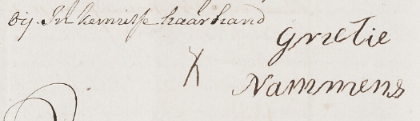 bij In kennisse haar hand
Grietie
X
Nammens